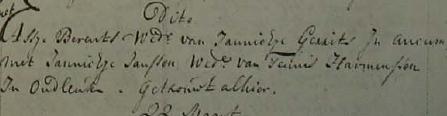 Dito
Berents Wed.e van Jannickje Gerrits In ancum
met Jannickje Janssen Wed.e van Teunis Harmenssen
In Oudleusen. Getrouwt alhier.
22 Maart